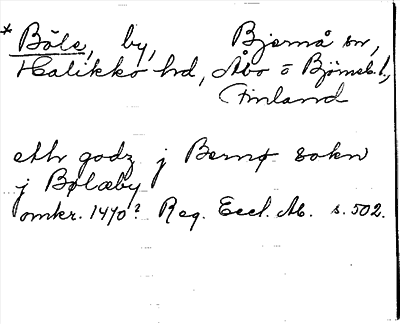 * Böle, by, Bjernå sn,
Halikko hd, Åbo o Björneb. l.,
Finland
ettr godz j Bernø sokn
j Bølæby
omkr. 1470? Reg. Eccl. Ab. s. 502.